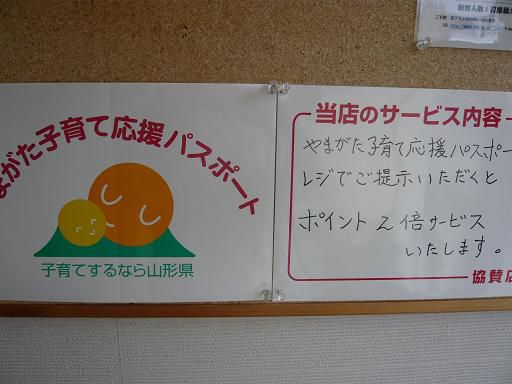 まがた子育て応援パスポート
子育てするなら山形県
当店のサービス内容
やまがた子育て応援パスポー
レジでご提示いただくと
ポイント2倍サービス
いたします。
協賛店